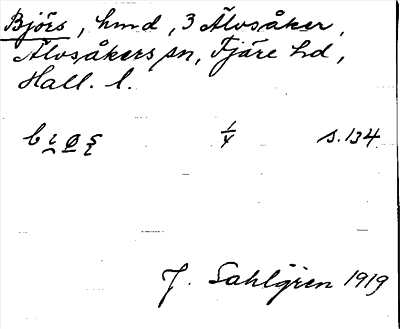 Björs, hmd, 3 Älvsåker,
Älvsåkers sn, Fjäre hd,
Hall. l.
s. 134
J. Sahlgren 1919